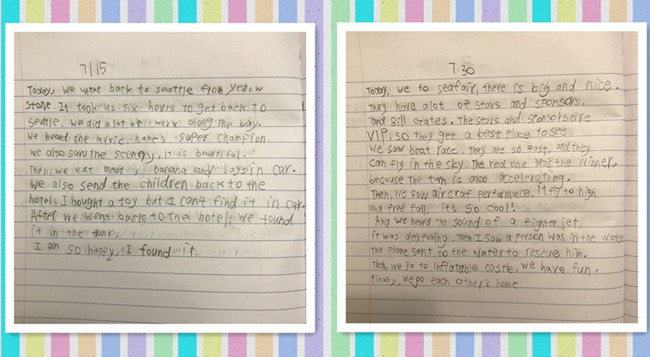 7/15
Today, we went back to seattle from yellow
stone. It took us six hours to get back to
seattle, we did a lot of work along the way.
We heard the music name's super champion.
We also saw the scenery, it is beautiful.
Then, we eat meat, banana and lays in car.
We also send the children back to the
hotel. I bought a toy but I can't find it in car.
After we went back to the hotel, we found
it in the
I am so happy, I found it.
7.30
Today, we to seafair, there is big and nice.
They have alot of stars and sponsors.
and Bill Grates. The stars and sponsors are
VIP, so they get a best place to see.
We saw boat race. They are so fast, and they
can fly in the sky. The red one was the winner,
because the turn is also accelerating.
Then, we saw aircraf performance, it fly to high
and free fall, its so cool!
And we heard the sound of a fighter jet,
it was deafening. Then I saw a person was in the water
the plane sent to the water to rescue him.
Then, we go to inflatable castle, we have fun.
finally, we go each other's home.